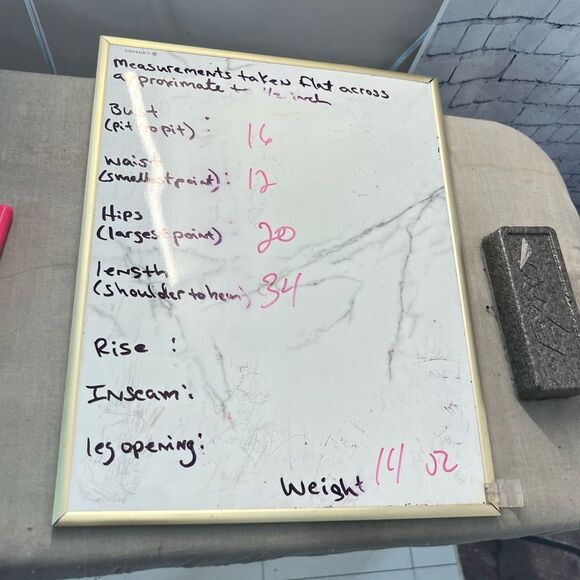 measurements taken flat across
approximate to 1/2 inch
Bust
(pit to pit) : 16
Waist
(smallest point) : 12
Hips
(largest point) 20
length
(shoulder to hem) 34
Rise :
Inseam :
leg opening:
Weight 14 oz